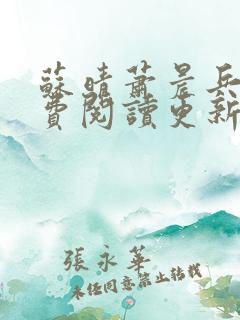 蘇晴蕭晨兵
費閱讀更新
張永華
未經同意禁止轉載